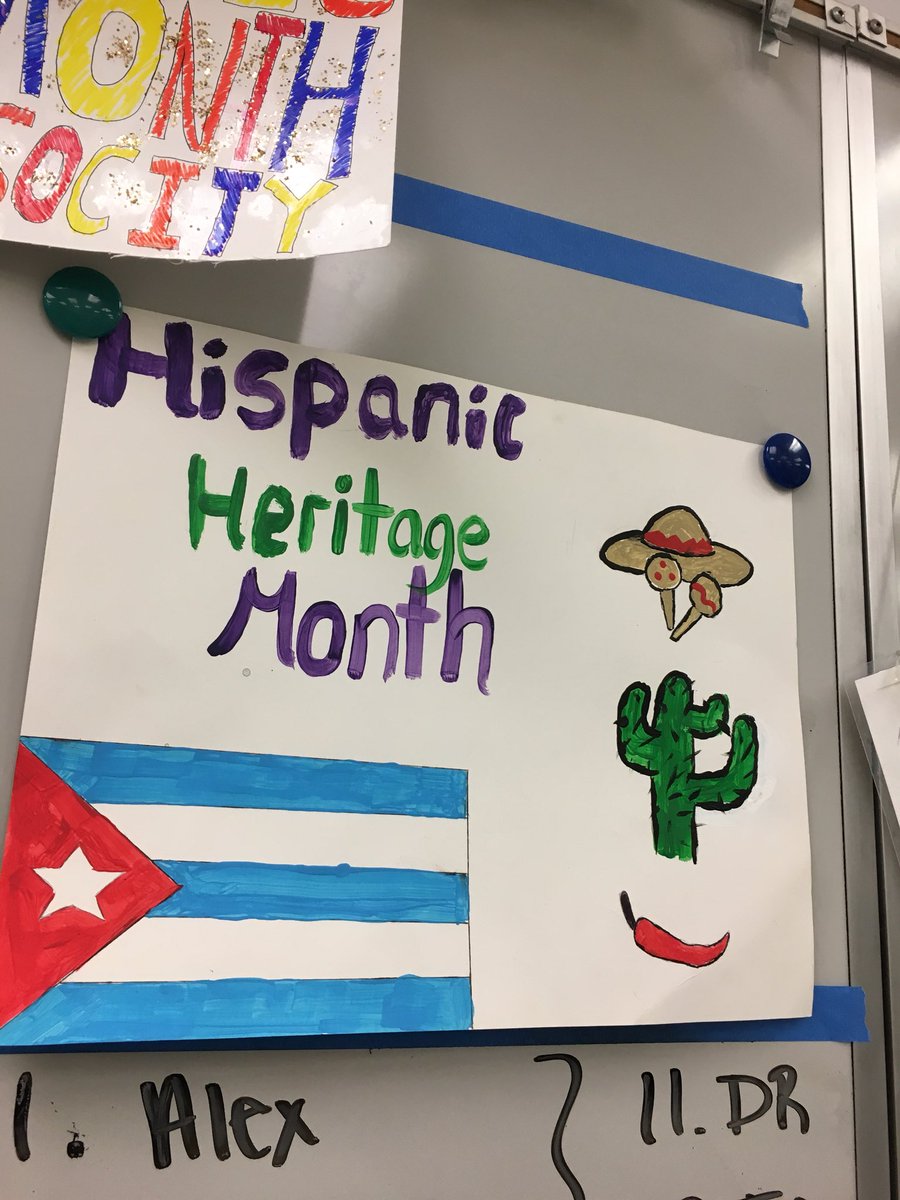 MONTH
SOCITY
Hispanic
Heritage
Month
1. Alex
11. DR